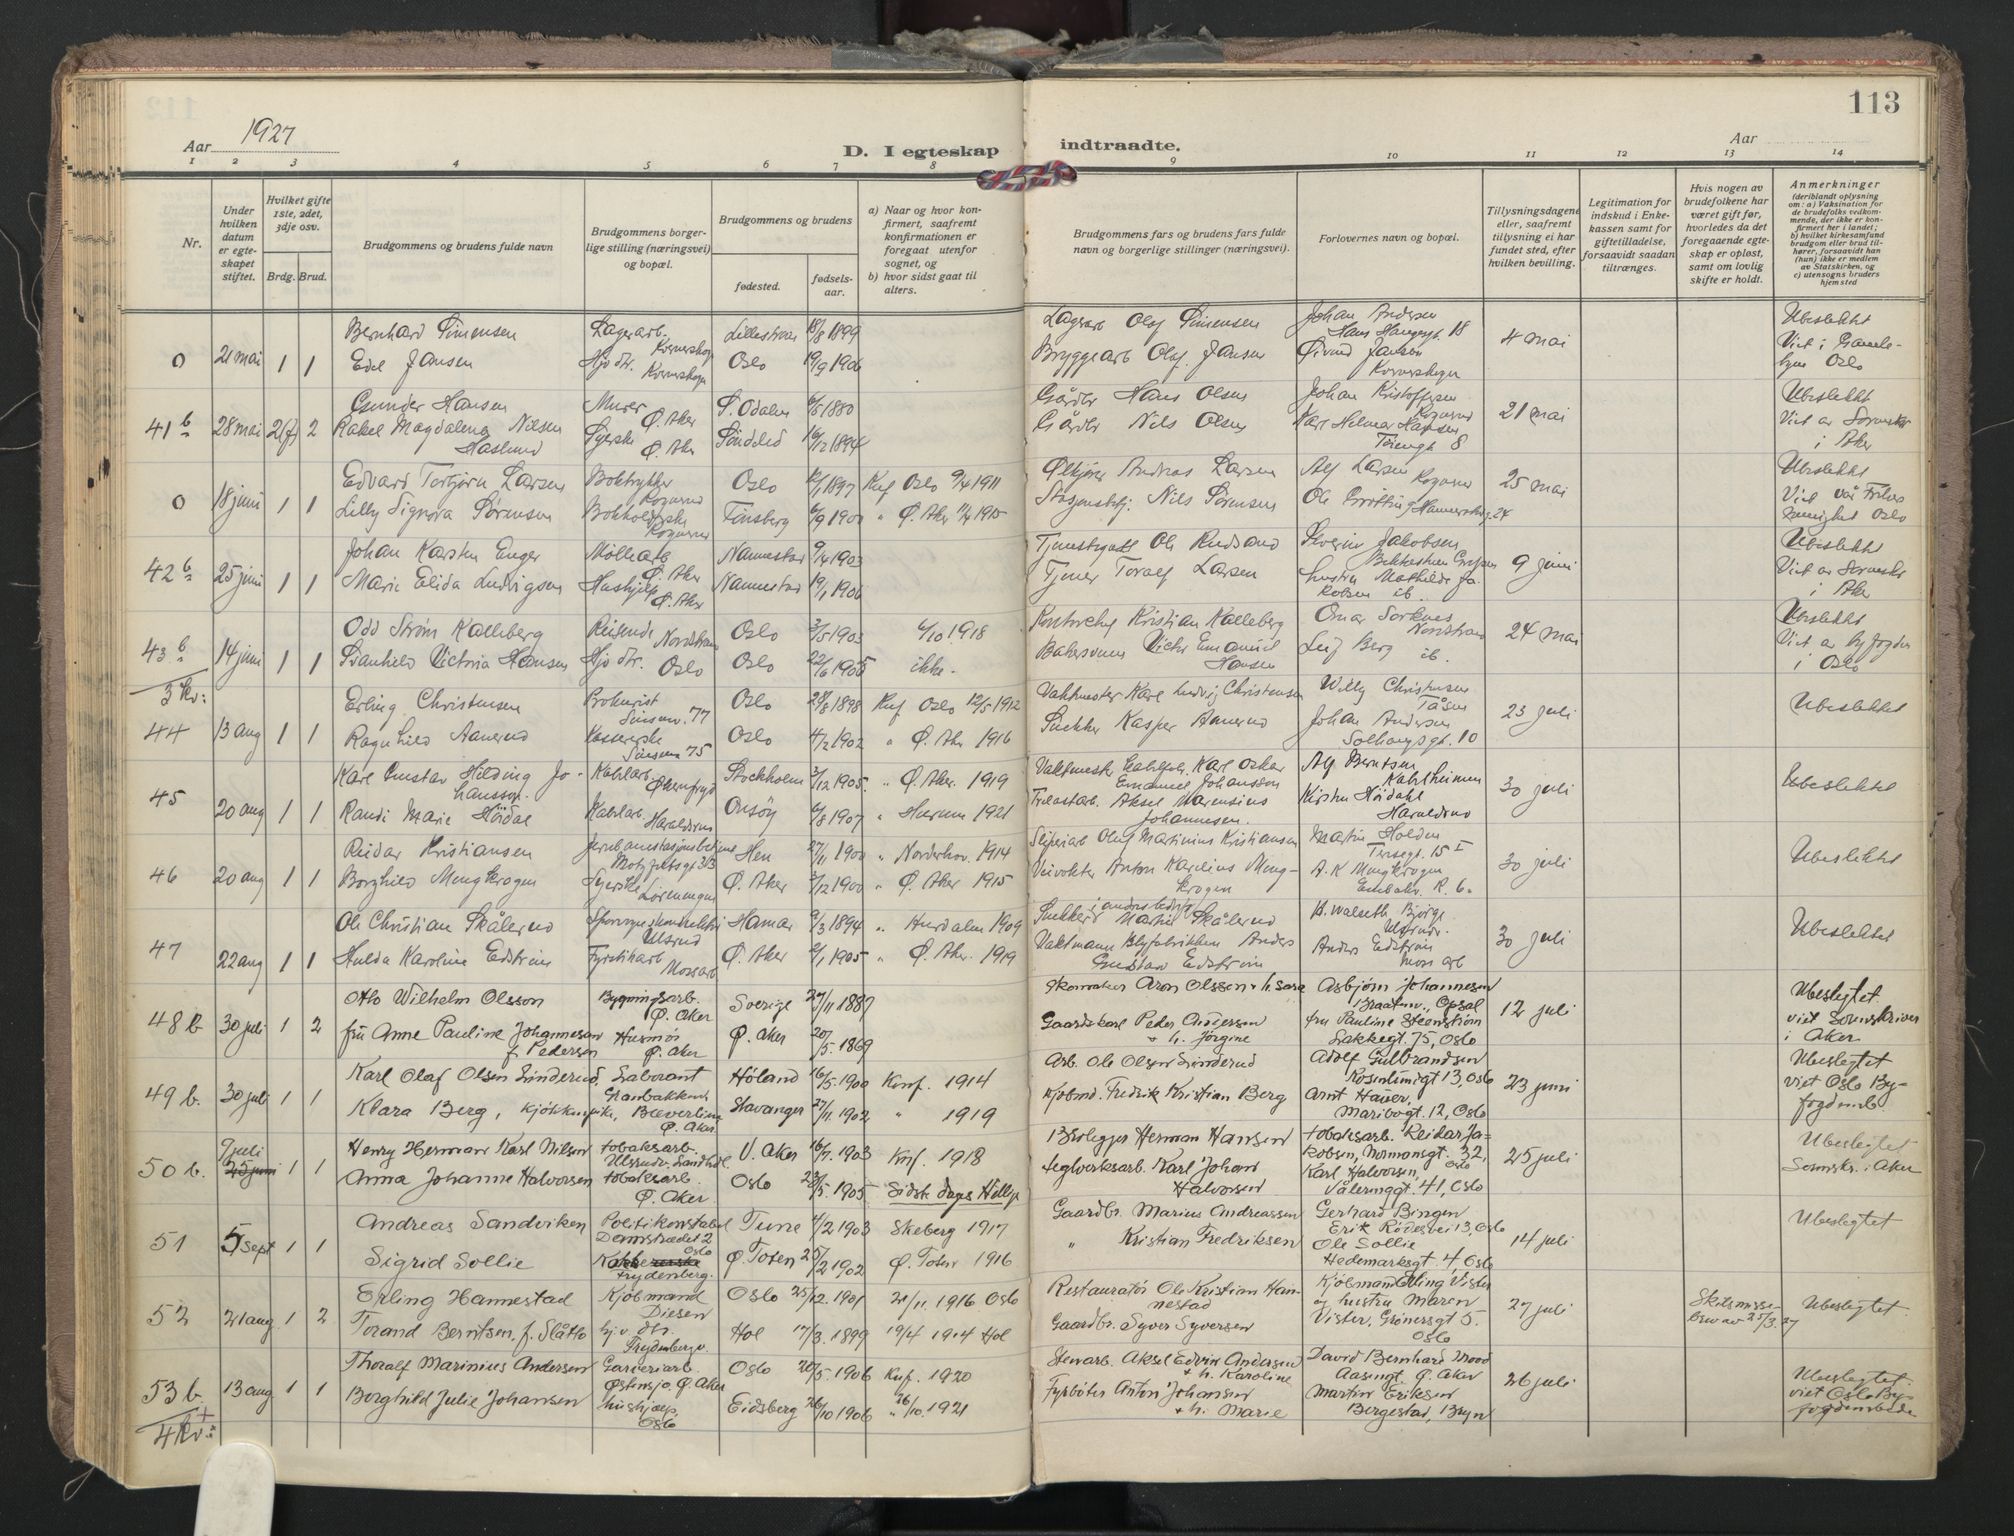 113
Aar 1927
D. I egteskap indtraadte.
Aar
1 2 3 4 5 6 7 8 9 10 11 12 13 14
Nr.
Under hvilken datum er egte-skapet stiftet.
Hvilket gifte 1ste, 2det, 3dje osv.
Brdg. Brud.
Brudgommens og brudens fulde navn
Brudgommens borger-lige stilling (næringsvei) og bopæl.
Brudgommens og brudens
fødested.
fødsels-aar.
a) Naar og hvor kon-firmert, saafremt konfirmationen er foregaaet utenfor sognet, og
b) hvor sidst gaat til alters.
Brudgommens fars og brudens fars fulde navn og borgerlige stillinger (næringsvei).
Forlovernes navn og bopæl.
Tillysningsdagene eller, saafremt tillysning ei har fundet sted, efter hvilken bevilling.
Legitimation for indskud i Enke-kassen samt for giftetilladelse, forsaavidt saadan tiltrænges.
Hvis nogen av brudefolkene har været gift før, hvorledes da det foregaaende egte-skap er opløst, samt om lovlig skifte er holdt.
Anmerkninger (deriblandt oplysning om: a) Vaksination for de brudefolks vedkom-mende, der ikke er kon-firmert her i landet; b) hvilket kirkesamfund brudgom eller brud til-hører, forsaavidt han (hun) ikke er medlem av Statskirken, og c) utensogns bruders hjemsted
0 21 mai 1 1 Bernhard Simensen Lagerarb. Lillestrøm 18/8 1899 Lagerarb Olaf Simensen Johan Andersen 18 4 mai Ubeslektet
Edel Jansen Oslo 19/9 1906 Bryggearb Olaf Jansen Øivind Jansen Viet i Gamle-byen Oslo
41 b 28 mai 2(f) 2 Gunder Hansen Murer Ø. Aker S. Odalen 6/5 1880 Gårdbr Hans Olsen Johan Kristoffersen 21 mai Ubeslektet
Rakel Magdalena Nilsen Haslund Syerske Ø. Aker Søndeled 16/12 1894 Gårdbr Nils Olsen Karl Helmer Hansen 8 Viet av Sorenskr i Aker
0 18 juni 1 1 Edvard Torbjørn Larsen Boktrykker Oslo 1897 Knf Oslo 9/4 1911 Andreas Larsen Alf Larsen 25 mai Ubeslektet
Lilly Signora Sørensen Tønsberg 6/9 1900 " Ø. Aker 1915 Nils Sørensen Ole 24 Oslo
42 b 25 juni 1 1 Johan Karsten Enger Møllearb Ø. Aker Nannestad 9/4 1903 Ole Rudsand Severin Jakobsen 9 juni Ubeslektet
Marie Elida Ludvigsen Hushjelp Ø. Aker Nannestad 19/1 1906 Tjener Toralf Larsen hustru Mathilde Ja-kobsen ib. Viet av Sorenskr i Aker
43 b 14 juni 1 1 Odd Strøm Kalleberg Reisende Nordstrand Oslo 3/5 1903 4/10 1918 Kristian Kalleberg Omar Nordstrand 24 mai Ubeslektet
Svanhild Victoria Hansen Hj dtr. Oslo Oslo 22/6 1905 ikke. Bakersvenn Victor Emanuel Hansen Leif Berg ib. Viet av byfogden i Oslo
3 kv:
44 13 aug 1 1 Erling Christensen 77 Oslo 28/8 1898 Knf Oslo 12/5 1912 Vaktmester Karl Ludvig Christensen Willy Christensen Tåsen 23 juli Ubeslektet
Ragnhild Aanerud 75 Oslo 4/2 1902 " Ø. Aker 1916 Snekker Kasper Aanerud Johan Andersen Solhaugsgt. 10
45 20 aug 1 1 Karl Gustav Hilding Jo-hansson Kabelarb. Økernfryd Stockholm 3/12 1905. " Ø. Aker. 1919 Karl Oskar Emanuel Johansson Alf Berntsen Kabelheimen 30 juli Ubeslektet
Randi Marie Høidal Kabelarb. Haraldsrud Onsøy 4/8 1907 " Hurum 1921 Aksel Marensius Johannesen. Kirsten Høidahl Haraldsrud
46 20 aug 1 1 Reidar Kristiansen Jernbanestasjonsbetjent Hen 27/11 1900 " Norderhov. 1914 Sliperiarb Oluf Martinius Kristiansen Martin Holden 15 I 30 juli Ubeslektet
Borghild Mengkrogen Syerske Ø. Aker 2/12 1900 " Ø. Aker 1915 Veivokter Anton Karelius Meng-krogen A. K Mengkrogen R. 6a
47 22 aug 1 1 Ole Christian Skålerud Ulsrud Hamar 9/3 1894 " Hurdalen 1909 Snekker Martin Skålerud Ulsrud. 30 juli Ubeslektet
Hulda Karoline Edstrøm Fyrstikarb Ø. Aker 2/1 1905 " Ø. Aker. 1919 Vaktmann Blyfabrikken Anders Gustav Edstrøm Anders Edstrøm
48 b 30 juli 1 2 Otto Wilhelm Olsson Bygningsarb. Ø. Aker Sverige 27/11 1887 Skomaker Aron Olssen + h. Sara Asbjørn Johannesen Braatenv., Opsal 12 juli Ubeslegtet.
fru Anne Pauline Johannesen f. Pedersen Husmor Ø. Aker Ø. Aker 20/5. 1869 Gaardskarl Peder Andersen + h. Jørgine fru Pauline Steenstrøm Lakkegt. 75, Oslo viet Sorenskriver i Aker
49 b. 30 juli 1 1 Karl Olaf Olsen Linderud, Laborant Høland 16/5. 1900 Konf. 1914 Arb. Ole Olsen Linderud Adolf Gulbrandsen 13, Oslo 23 juni Ubeslegtet
Klara Berg, Ø. Aker. Stavanger 27/11 1902 " 1919 Kjøbmd. Fredrik Kristian Berg Arnt Hauer, Maribogt. 12, Oslo viet Oslo By-fogdemb
50 b. 9 juli 25 juni 1 1 Henry Herman Karl Nilsen tobaksarb. V. Aker 16/7. 1903 Knf. 1918 Brolegger Herman Hansen tobaksarb. Reidar Ja-kobsen, Normannsgt. 32, Oslo 25 juli Ubeslegtet
Anna Johanne Halvorsen tobaksarb. Ø. Aker. Oslo 23/5. 1905 Sidste dages Hellige teglverksarb. Karl Johan Halvorsen Karl Halvorsen, Vålerenggt. 41, Oslo Sorenskr. i Aker
51 5 sept 1 1 Andreas Sandviken Politikonstabel Damstrædet 2 Oslo Tune 4/2 1903 Skeberg 1917 Gaardbr. Marius Andreassen Gerhard Bingen Erik Rødesvei 13, Oslo 14 juli Ubeslegtet
Sigrid Sollie Frydenberg. Ø. Toten 25/2 1902 Ø. Toten 1916 " Kristian Fredriksen Ole Sollie Hedemarksgt. 4, Oslo
52 21 aug 1 2 Erling Hannestad Kjøbmand Diesen Oslo 25/12. 1901 21/11. 1916 Oslo Restauratør Ole Kristian Han-nestad Kjøbmand Erling Vister og hustru Maren Vister, Grønersgt 5. Oslo 27 juli Skilsmisse-brev av 25/3. 27 Ubeslegtet
Torand Berntsen f. Slåtto hjv. dtr. Frydenbergv. Hol 17/3. 1899 19/4 1914 Hol Gaardbr. Syver Syversen
53 b. 13 aug 1 1 Thoralf Marinius Andersen Garveriarb. Østensjø, Ø. Aker Oslo 20/5. 1906 Knf. 1920 Stenarb. Aksel Edvin Andersen + h. Karoline David Bernhard Wood Aasengt. Ø. Aker 26 juli Ubeslegtet.
Borghild Julie Johansen hushjælp, Oslo Eidsberg 26/10 1906 " 26/10. 1921 Fyrbøter Anton Johansen + h. Marie Martin Eriksen Bergestad, Bryn viet Oslo By-fogdembede
4 Kv: